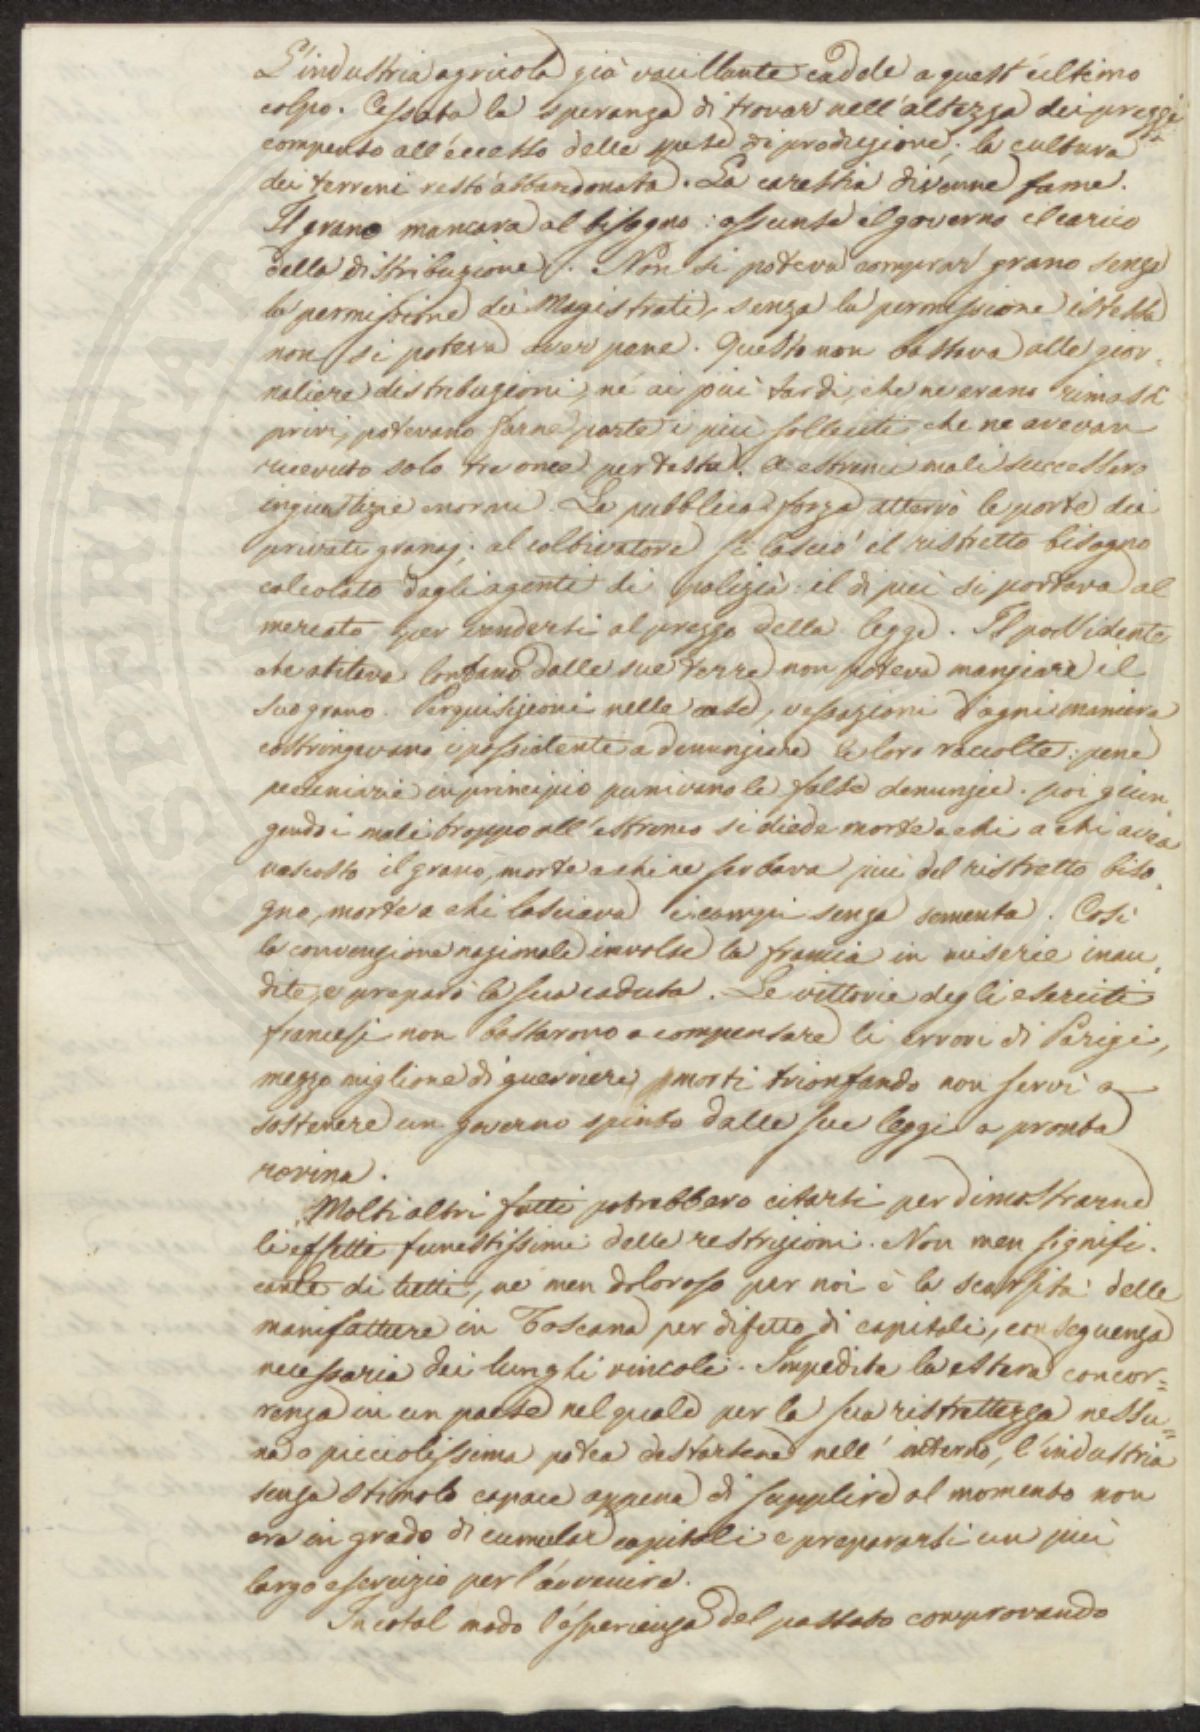 L'industria agricola già vacillante cadde a quest'ultimo
colpo. Cessata la speranza di trovar nell'altezza dei prezzi
compenso all'eccesso delle spese di produzione; la cultura
dei terreni restò abbandonata. La carestia divenne fame.
Il grano mancava al bisogno: assunse il governo il carico
della distribuzione. Non si poteva comprar grano senza
la permissione dei Magistrati, senza la permissione istessa
non si poteva aver pane. Questo non bastava alle gior-
naliere distribuzioni, né ai più tardi, che ne erano rimasti
privi, potevano farne parte i più solleciti che ne avevan
ricevuto solo tre once per testa. A estremi mali successero
ingiustizie enormi. La pubblica forza atterrò le porte dei
privati granaj; al coltivatore si lasciò il ristretto bisogno
calcolato dagli agenti di polizia: il di più si portava al
mercato per vendersi al prezzo della legge. Il possidente
che abitava lontano dalle sue terre non poteva mangiare il
suo grano. Perquisizioni nelle case, vessazioni d'ogni maniera
costringevano i possidente a denunziare le loro raccolte: pene
pecuniarie in principio punivano le false denunzie. poi giun
gendo i mali troppo all'estremo si diede morte a chi a chi avea
nascosto il grano, morte a chi ne serbava più del ristretto biso
gno, morte a chi lasciava i campi senza sementa. Così
la convenzione nazionale involse la francia in miserie inau
dite, e preparò la sua caduta. Le vittorie degli eserciti
francesi non bastarono a compensare li errori di Parigi,
mezzo miglione di guerrieri morti trionfando non servì a
sostenere un governo spinto dalle sue leggi a pronta
rovina.
Molti altri fatti potrebbero citarsi per dimostrarne
li effetti funestissimi delle restrizioni. Non men signifi-
cante di tutti, né men doloroso per noi è la scarsità delle
manifatture in Toscana per difetto di capitali, conseguenza
necessaria dei lunghi vincoli. Impedita la estera concor=
renza in un paese nel quale per la sua ristrettezza nessu=
na o picciolissima potea destarsene nell'interno, l'industria
senza stimolo capace appena di supplire al momento non
era in grado di cumular capitali e prepararsi un più
largo esercizio per l'avvenire.
In cotal modo l'esperienza del passato comprovando